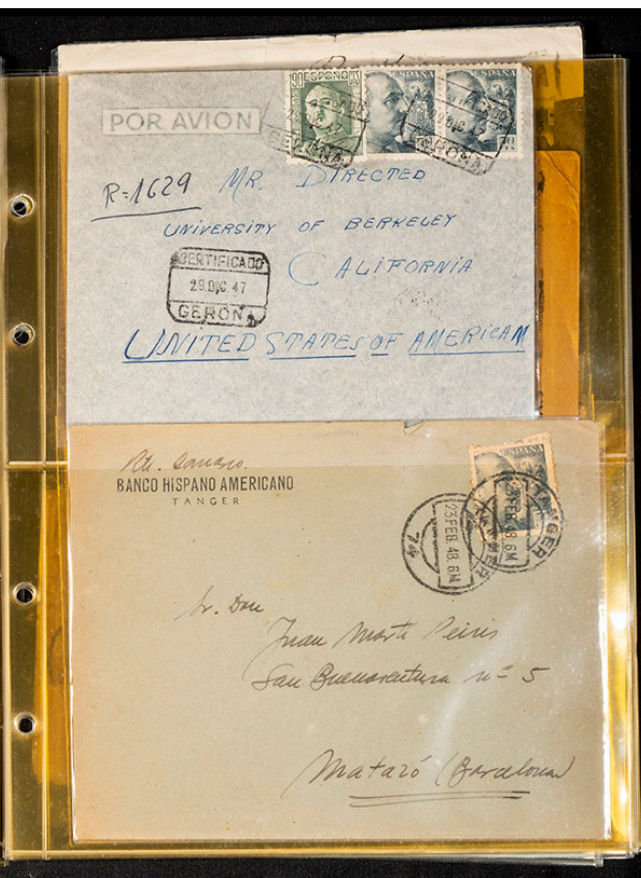 POR AVION
ESPAÑA
ESPAÑA
ESPAÑA
GERONA
GERONA
R=1629
MR. DIRECTED
UNIVERSITY OF BERKELEY
CALIFORNIA
CERTIFICADO
29.DIC.47
GERONA
UNITED STATES OF AMERICAM
BANCO HISPANO AMERICANO
TANGER
ESPAÑA
TANGER
23 FEB. 48. 6M
TANGER
23 FEB. 48. 6M
Sr. Don
Juan Marti Peiris
San Buenaventura nº 5
Mataró (Barcelona)